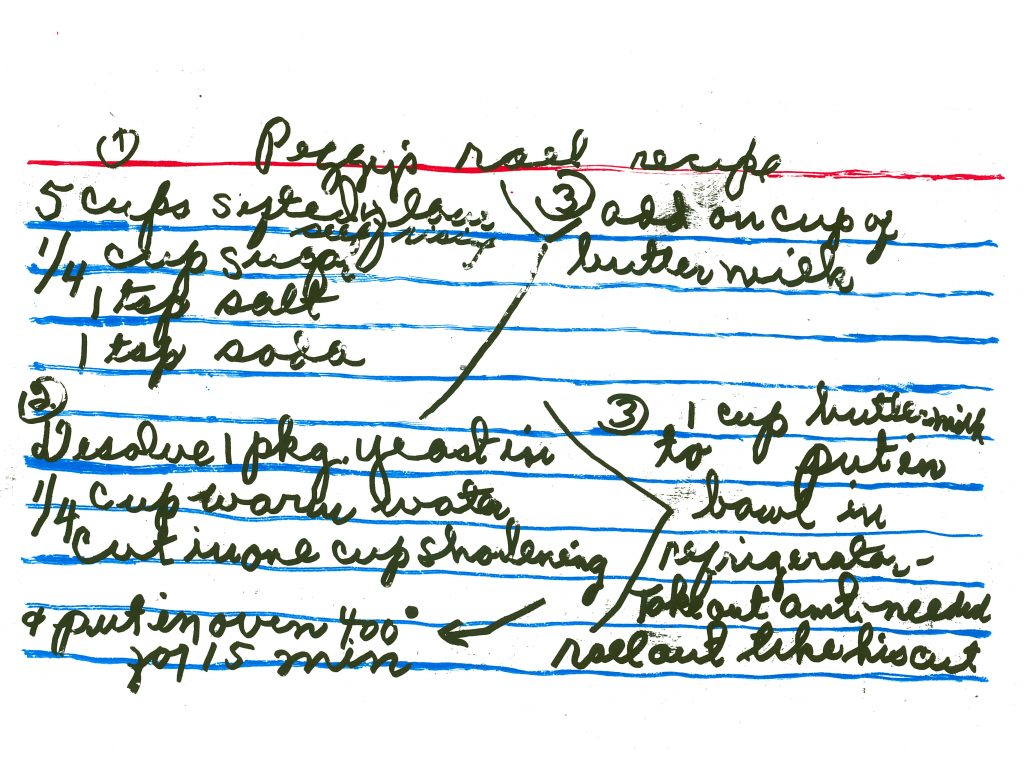 ① Peggy's roll recipe
5 cups sifted flour
self rising
1/4 cup sugar
1 tsp salt
1 tsp soda
③ add on cup of
butter milk
②
Desolve 1 pkg. yeast in
1/4 cup warm water
Cut in one cup shortening
③ 1 cup butter milk
to put in
bowl in
refrigerator -
Take out amt. needed
roll out like biscut
& put in oven 400°
for 15 min